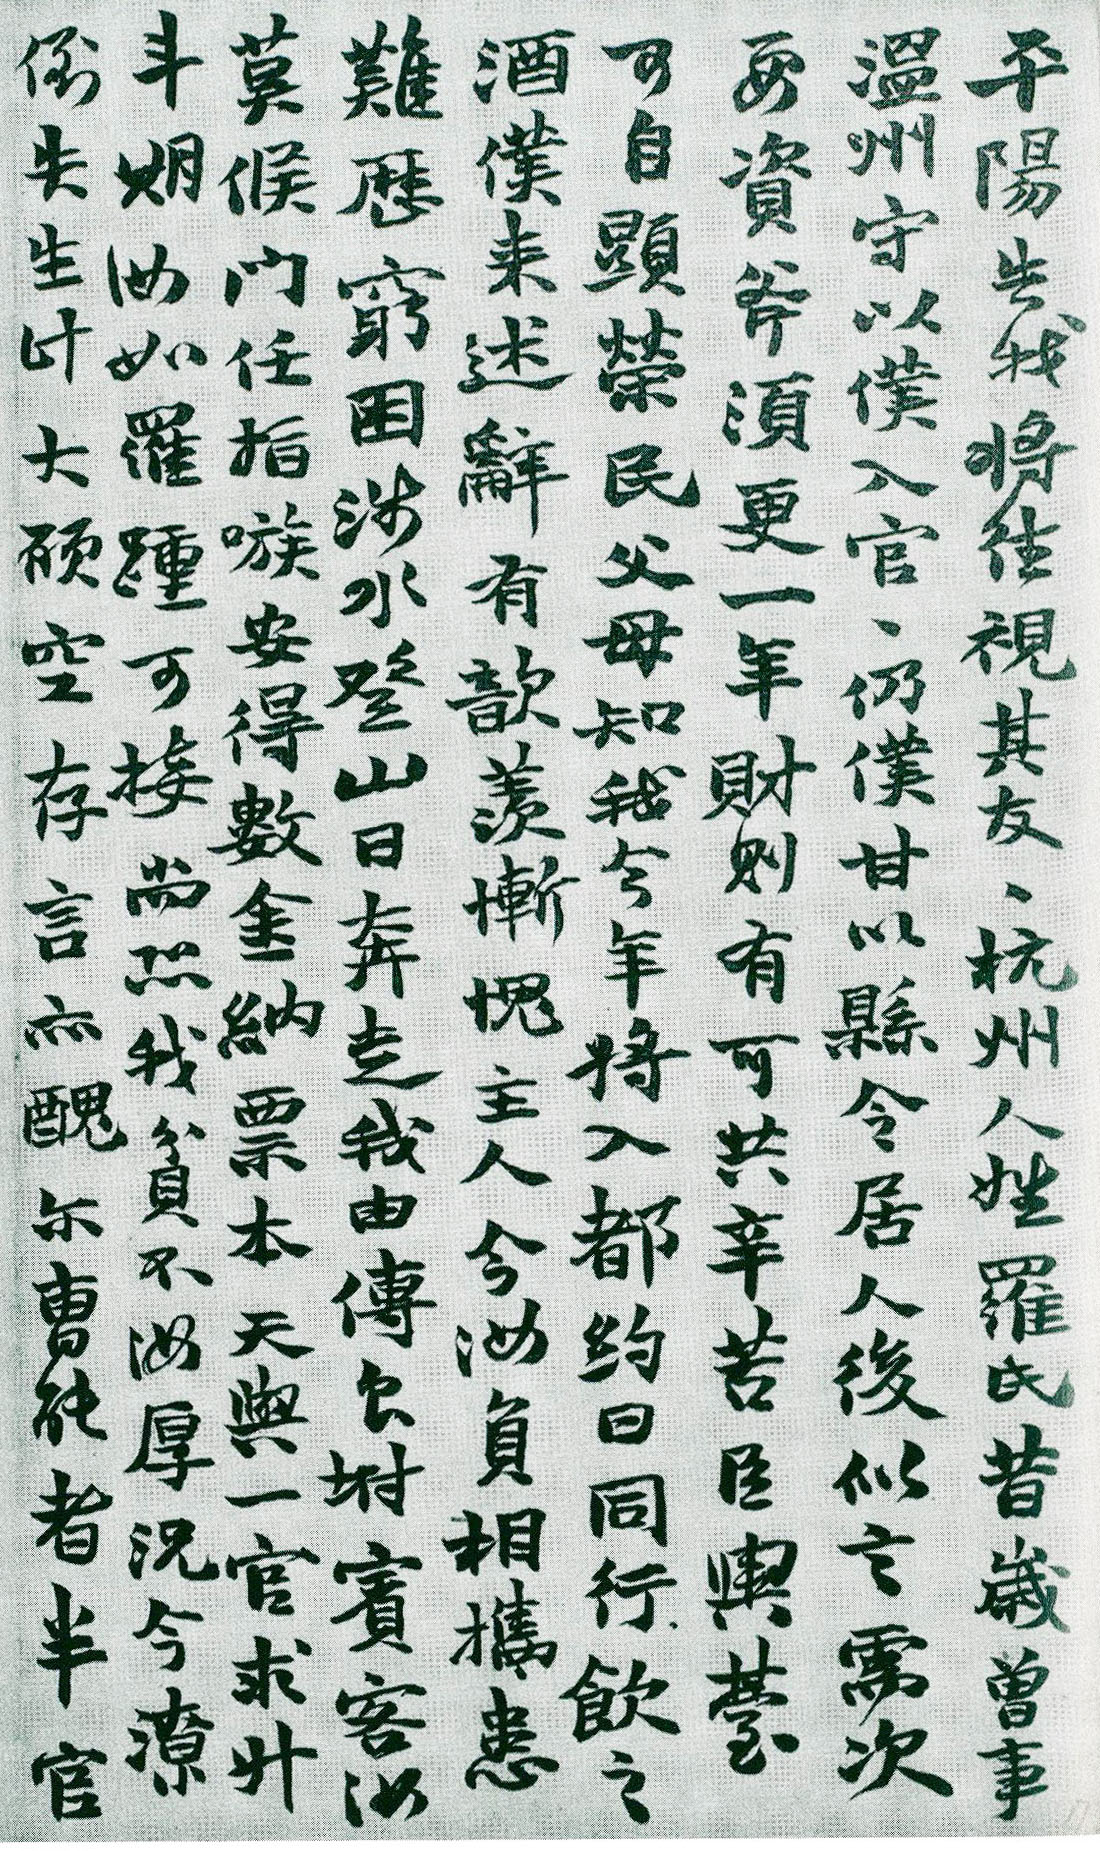 平陽告我將往視其友〻杭州人姓羅氏昔歲曾事
溫州守以僕入官〻仍僕甘以縣令居人後似言需次
要資斧須更一年財則有可共辛苦臣輿薹
可自顯榮民父母知我今年將入都約曰同行飲之
酒僕來述辭有歆羨慚愧主人今汝負相攜患
難歷窮困涉水登山日奔走我由傳食坿賓客汝
莫候門任指嗾安得數金納票本天與一官求升
斗朙汝如羅踵可接尚恐我貧不汝厚況今潦
倒失生計大碩空存言亦醜尔曹能者半官